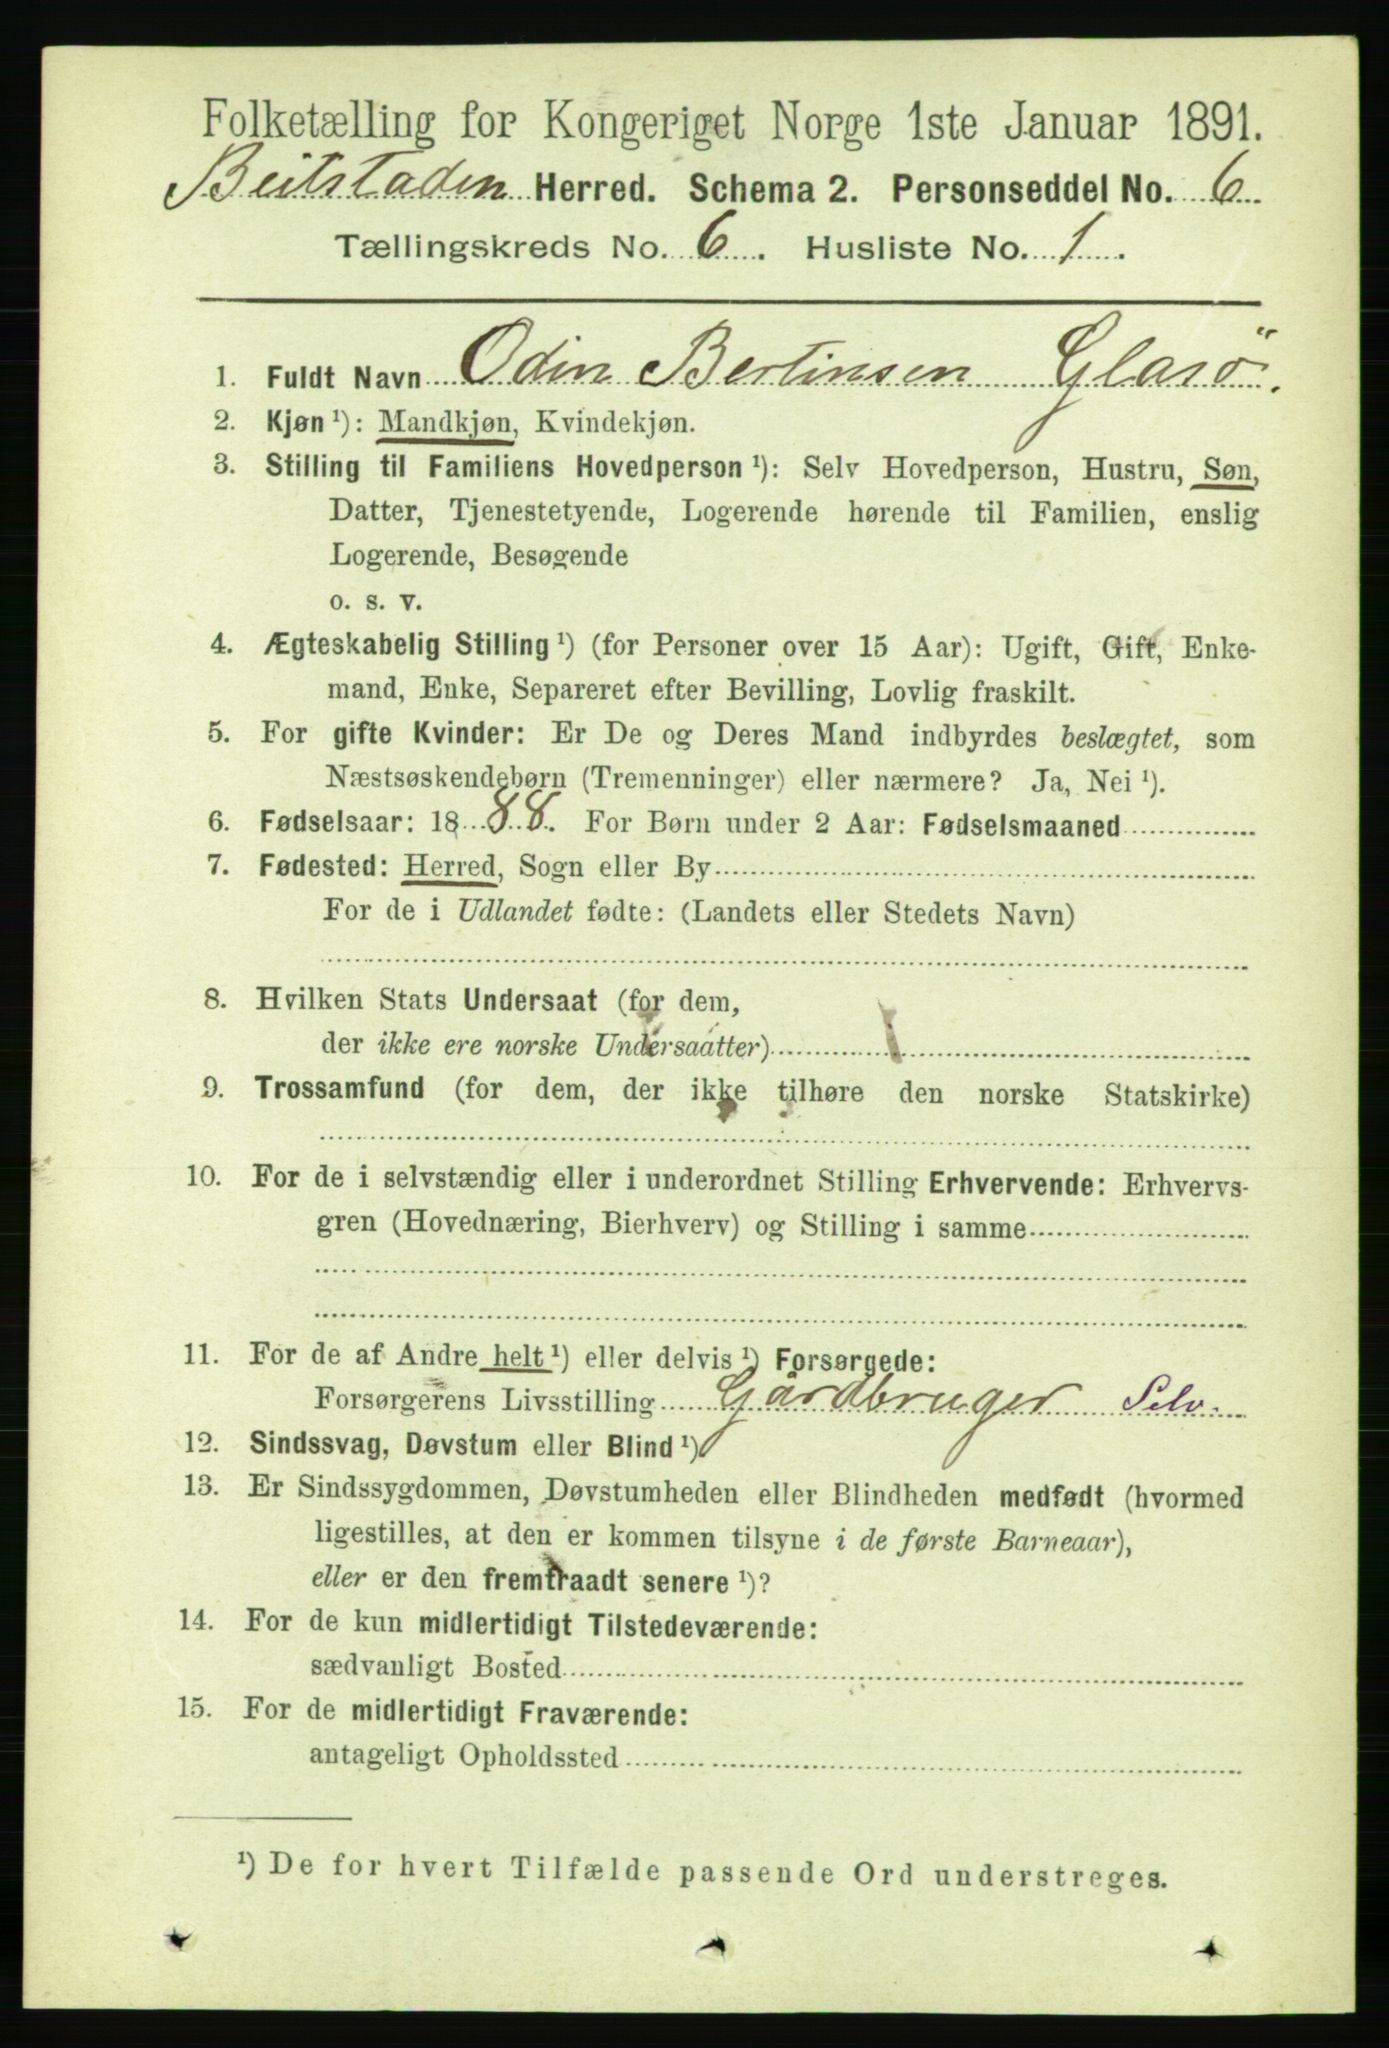 Folketælling for Kongeriget Norge 1ste Januar 1891.
Beitstaden Herred. Schema 2. Personseddel No. 6
Tællingskreds No. 6. Husliste No. 1.
1. Fuldt Navn Odin Bertinsen Glasö.
2. Kjøn ¹): Mandkjøn, Kvindekjøn.
3. Stilling til Familiens Hovedperson ¹): Selv Hovedperson, Hustru, Søn,
Datter, Tjenestetyende, Logerende hørende til Familien, enslig
Logerende, Besøgende
o. s. v.
4. Ægteskabelig Stilling ¹) (for Personer over 15 Aar): Ugift, Gift, Enke-
mand, Enke, Separeret efter Bevilling, Lovlig fraskilt.
5. For gifte Kvinder: Er De og Deres Mand indbyrdes beslægtet, som
Næstsøskendebørn (Tremenninger) eller nærmere? Ja, Nei ¹).
6. Fødselsaar: 18 88. For Børn under 2 Aar: Fødselsmaaned
7. Fødested: Herred, Sogn eller By
For de i Udlandet fødte: (Landets eller Stedets Navn)
8. Hvilken Stats Undersaat (for dem,
der ikke ere norske Undersaatter)
9. Trossamfund (for dem, der ikke tilhøre den norske Statskirke)
10. For de i selvstændig eller i underordnet Stilling Erhvervende: Erhvervs-
gren (Hovednæring, Bierhverv) og Stilling i samme
11. For de af Andre helt ¹) eller delvis ¹) Forsørgede:
Forsørgerens Livsstilling Gårdbruger Selv.
12. Sindssvag, Døvstum eller Blind ¹)
13. Er Sindssygdommen, Døvstumheden eller Blindheden medfødt (hvormed
ligestilles, at den er kommen tilsyne i de første Barneaar),
eller er den fremtraadt senere ¹)?
14. For de kun midlertidigt Tilstedeværende:
sædvanligt Bosted
15. For de midlertidigt Fraværende:
antageligt Opholdssted
¹) De for hvert Tilfælde passende Ord understreges.